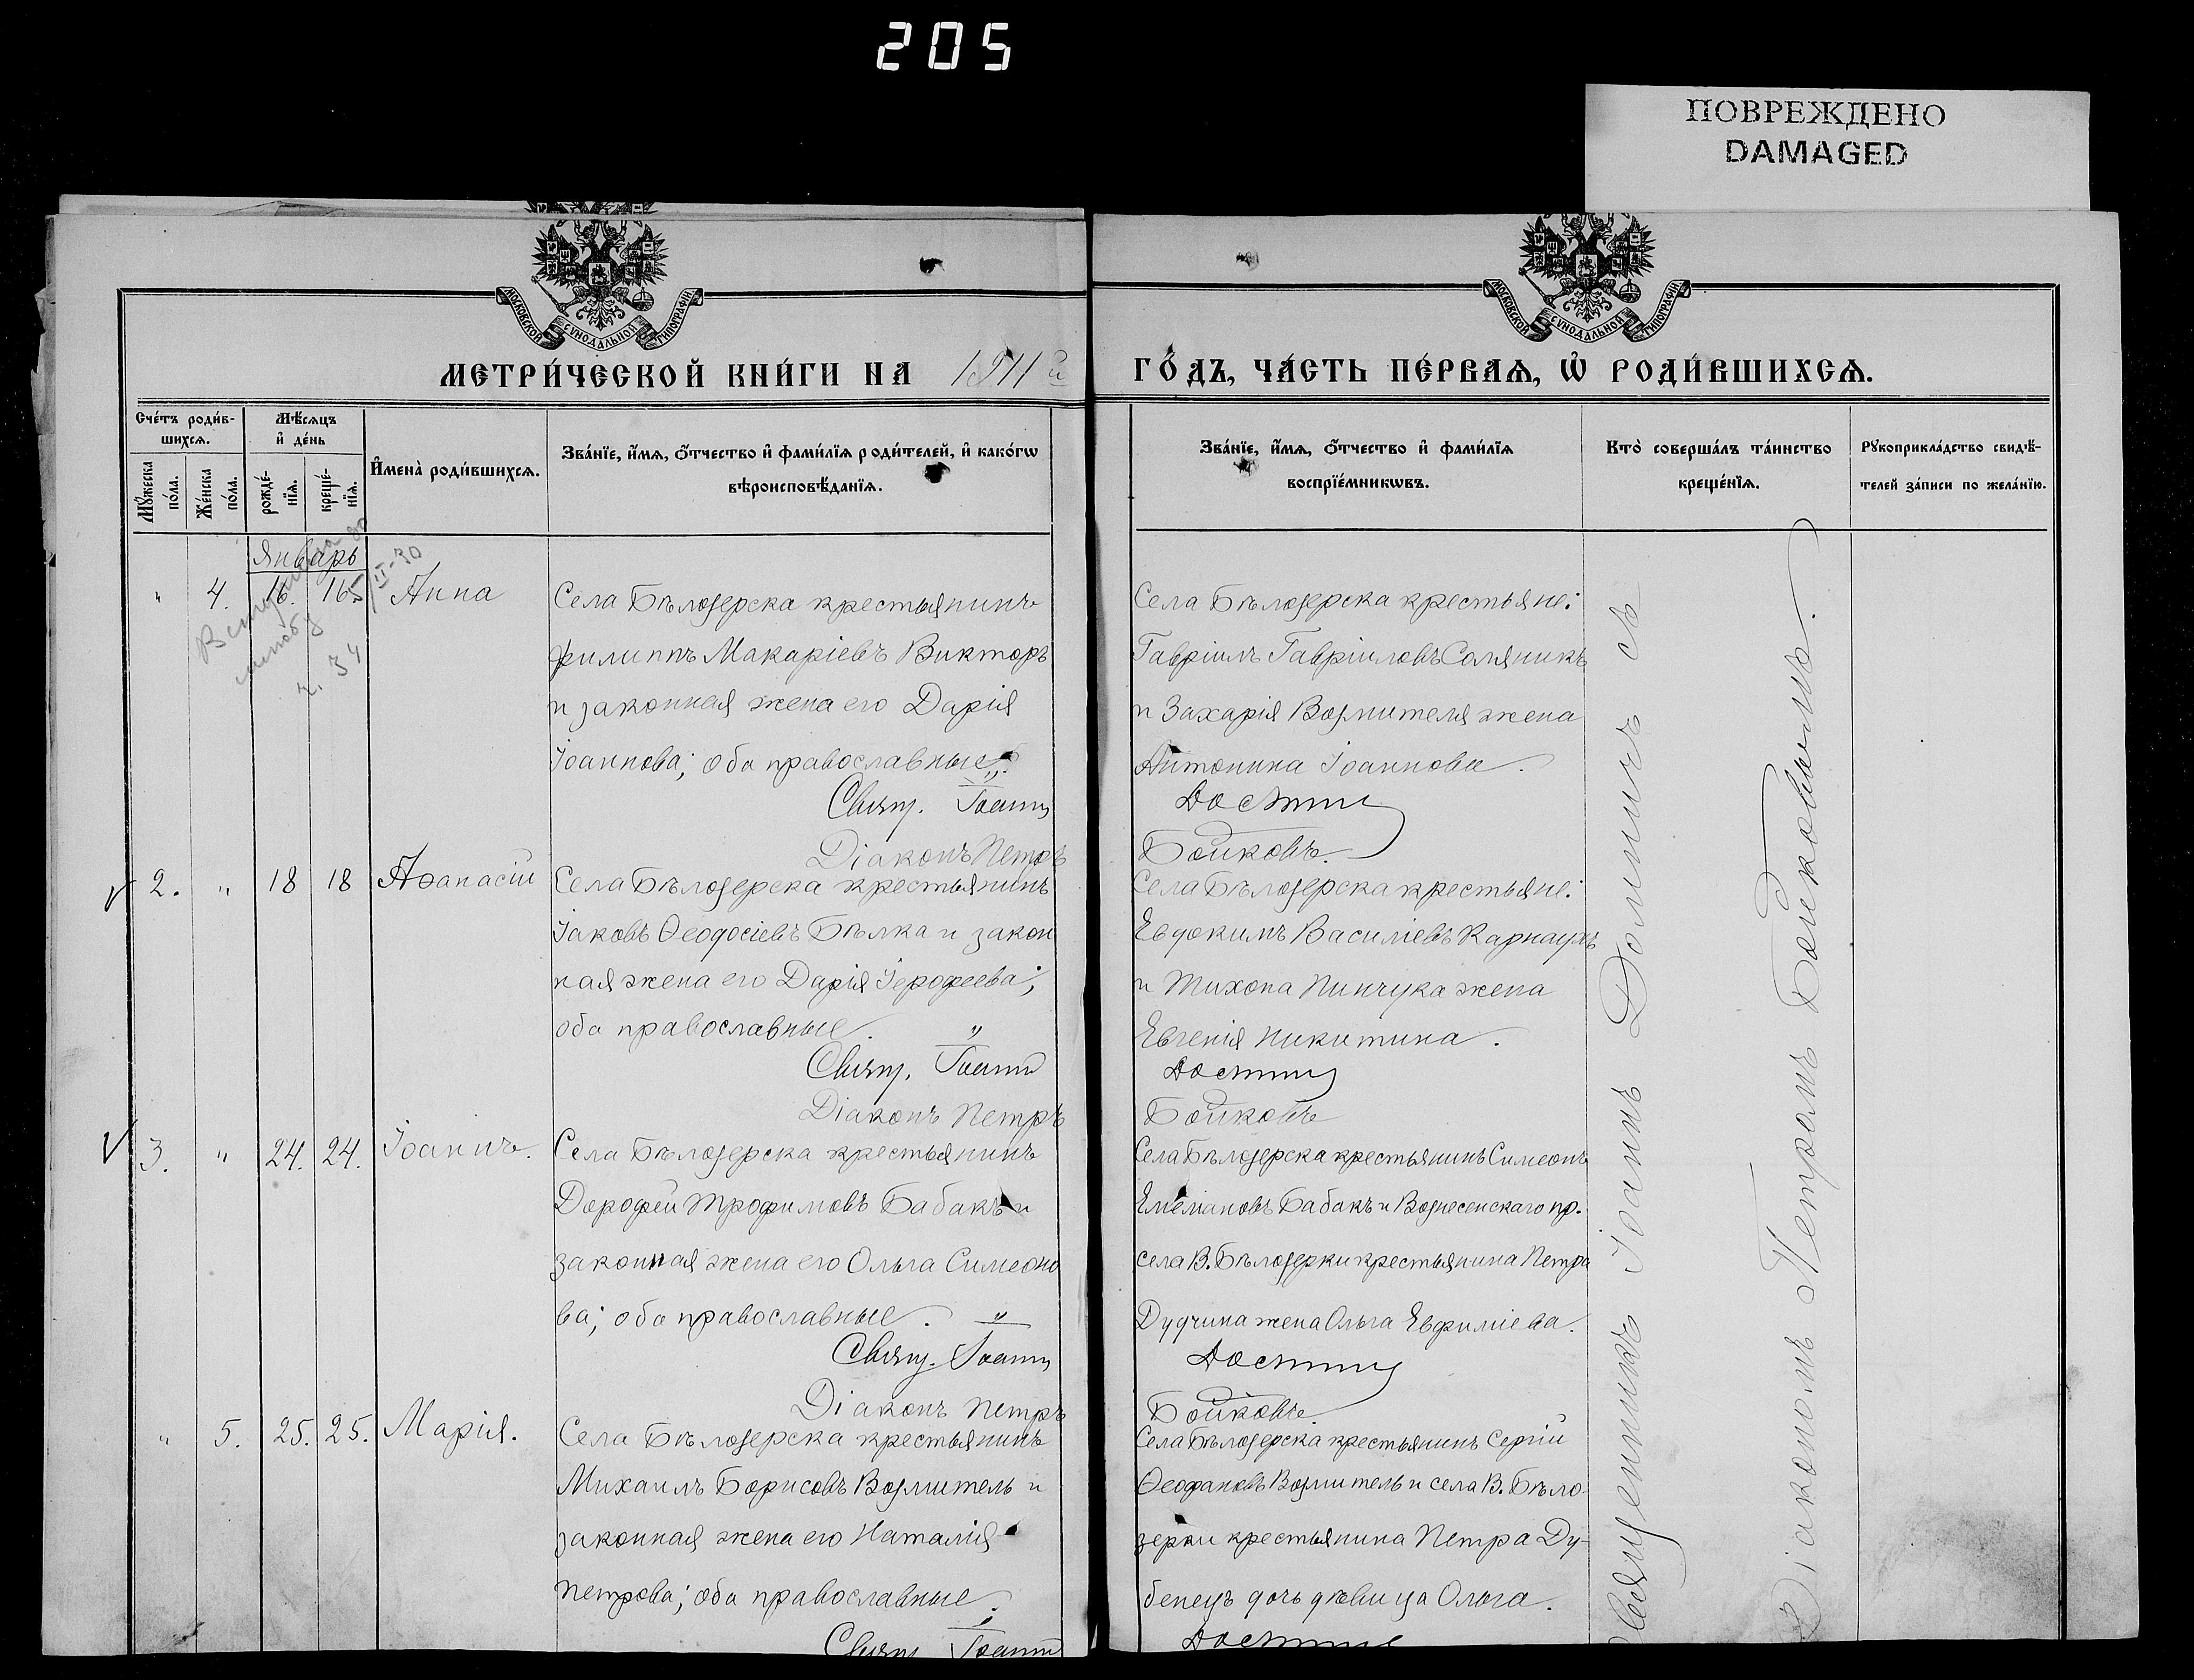 205
ПОВРЕЖДЕНО
DAMAGED
МОСКОВСКОЙ СѴНОДАЛЬНОЙ ТИПОГРАФІИ
МОСКОВСКОЙ СѴНОДАЛЬНОЙ ТИПОГРАФІИ
МЕТРИ́ЧЕСКОЙ КНИ́ГИ НА 1911й
ГО́ДЪ, ЧА́СТЬ ПЕ́РВАѦ, Ѡ҆ РОДИ́ВШИХСѦ.
Сче́тъ роди́в-
шихсѧ.
Мꙋ́жеска
по́ла.
Же́нска
по́ла.
Мѣ́сѧцъ
и҆ де́нь
рожде́-
нїѧ.
креще́-
нїѧ.
И҆мена̀ роди́вшихсѧ.
Зва́нїе, и҆́мѧ, ѻ҆́тчество и҆ фами́лїѧ роди́телей, и҆ како́гѡ
вѣроисповѣ́данїѧ.
Зва́нїе, и҆́мѧ, ѻ҆́тчество и҆ фами́лїѧ
воспрїе́мникѡвъ.
Кто̀ соверша́лъ та́инство
креще́нїѧ.
Рꙋкоприкла́дство свидѣ́-
телей за́писи по жела́нїю.
Январь
" 4. 16. 16 Анна
Села Бѣлозерска крестьянинъ
Филиппъ Макаріевъ Викторъ
и законная жена его Дарія
Іоаннова; оба православные.
Свящ. Іоаннъ
Діаконъ Петръ
Села Бѣлозерска крестьяне:
Гавріилъ Гавріиловъ Соляникъ
и Захарія Возмителя жена
Антонина Іоаннова.
Долинъ
Бойковъ.
2. " 18 18 Аѳанасій
Села Бѣлозерска крестьянинъ
Іаковъ Ѳеодосіевъ Бѣлка и закон
ная жена его Дарія Іерофеева;
оба православные.
Свящ. Іоаннъ
Діаконъ Петръ
Села Бѣлозерска крестьяне:
Евдокимъ Василіевъ Карнаухъ
и Тихона Пинчука жена
Евгенія Никитина.
Долинъ
Бойковъ
3. " 24. 24. Іоаннъ.
Села Бѣлозерска крестьянинъ
Дорофей Трофимовъ Бабакъ и
законная жена его Ольга Симеоно
ва; оба православные.
Свящ. Іоаннъ
Діаконъ Петръ
Села Бѣлозерска крестьянинъ Симеонъ
Емеліановъ Бабакъ и Вознесенскаго пр.
села В. Бѣлозерки крестьянина Петра
Дудчина жена Ольга Евфиміева.
Долинъ
Бойковъ.
" 5. 25. 25. Марія.
Села Бѣлозерска крестьянинъ
Михаилъ Борисовъ Возмитель и
законная жена его Наталія
Петрова; оба православные.
Свящ. Іоаннъ
Села Бѣлозерска крестьянинъ Сергій
Ѳеофановъ Возмитель и села В. Бѣло-
зерки крестьянина Петра Ду-
бенецъ дочь дѣвица Ольга.
Долинъ
Священникъ Іоаннъ Долинъ съ
Діакономъ Петромъ Бойковымъ.